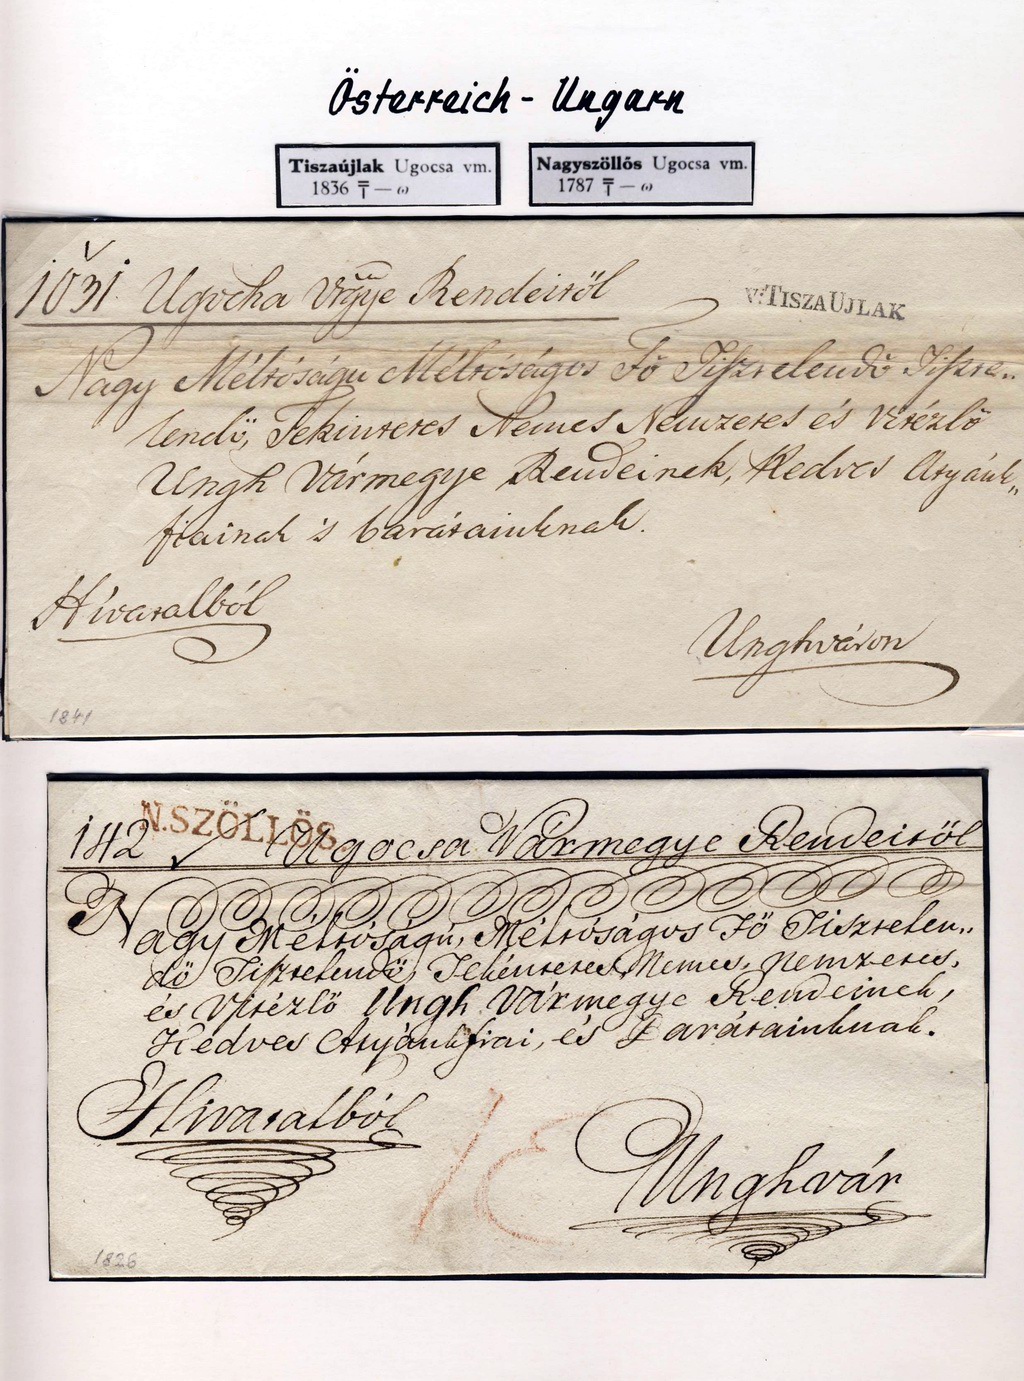 Österreich - Ungarn
Tiszaújlak Ugocsa vm.
1836 — ω
Nagyszöllős Ugocsa vm.
1787 — ω
1031. Ugocha Vrgye Rendeitől
v: TISZAUJLAK
Nagy Méltóságu Méltóságos Fő Tisztelendő Tiszte„
lendő, Tekintetes Nemes Nemzetes és Vitézlő
Ungh Vármegye Rendeinek, Kedves Atyánk„
fiainak 's barátainknak.
Hívatalból
Unghváron
1841
N.SZÖLLÖS
142 Ugocsa Vármegye Rendeitől
Nagy Méltóságú, Méltóságos Fő Tisztelen„
dő Tisztelendő, Tekéntetes, Nemes, Nemzetes,
és Vitézlő Ungh Vármegye Rendeinek,
Kedves Atyánkfiai, és Barátainknak.
Hivatalból
Unghvár
1826